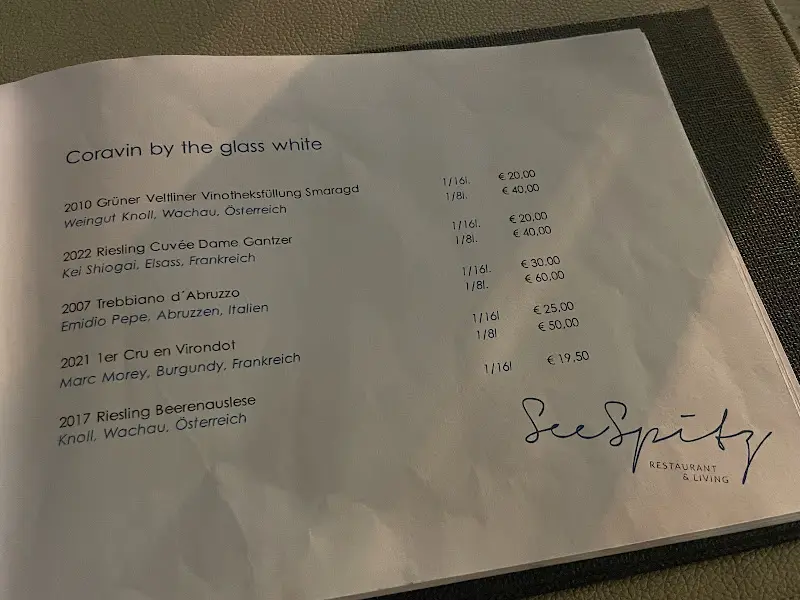 Coravin by the glass white
2010 Grüner Veltliner Vinotheksfüllung Smaragd 1/16l. € 20,00
Weingut Knoll, Wachau, Österreich 1/8l. € 40,00
2022 Riesling Cuvée Dame Gantzer 1/16l. € 20,00
Kei Shiogai, Elsass, Frankreich 1/8l. € 40,00
2007 Trebbiano d´Abruzzo 1/16l. € 30,00
Emidio Pepe, Abruzzen, Italien 1/8l. € 60,00
2021 1er Cru en Virondot 1/16l € 25,00
Marc Morey, Burgundy, Frankreich 1/8l € 50,00
2017 Riesling Beerenauslese 1/16l € 19,50
Knoll, Wachau, Österreich
SeeSpitz
RESTAURANT
& LIVING